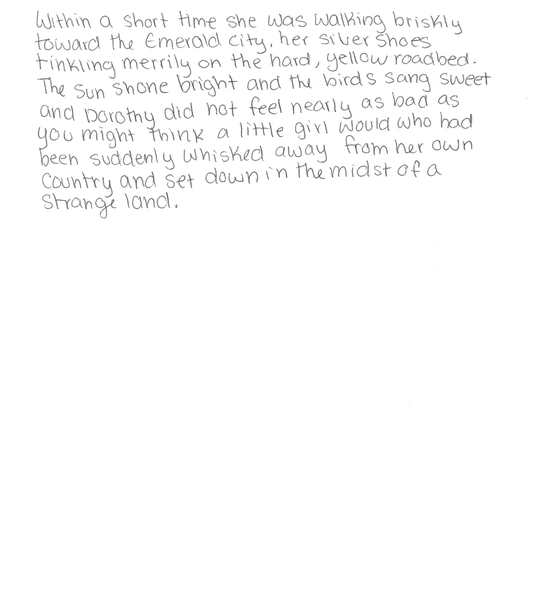 Within a short time she was walking briskly
toward the Emerald City, her silver shoes
tinkling merrily on the hard, yellow roadbed.
The sun shone bright and the birds sang sweet
and Dorothy did not feel nearly as bad as
you might think a little girl would who had
been suddenly whisked away from her own
country and set down in the midst of a
strange land.